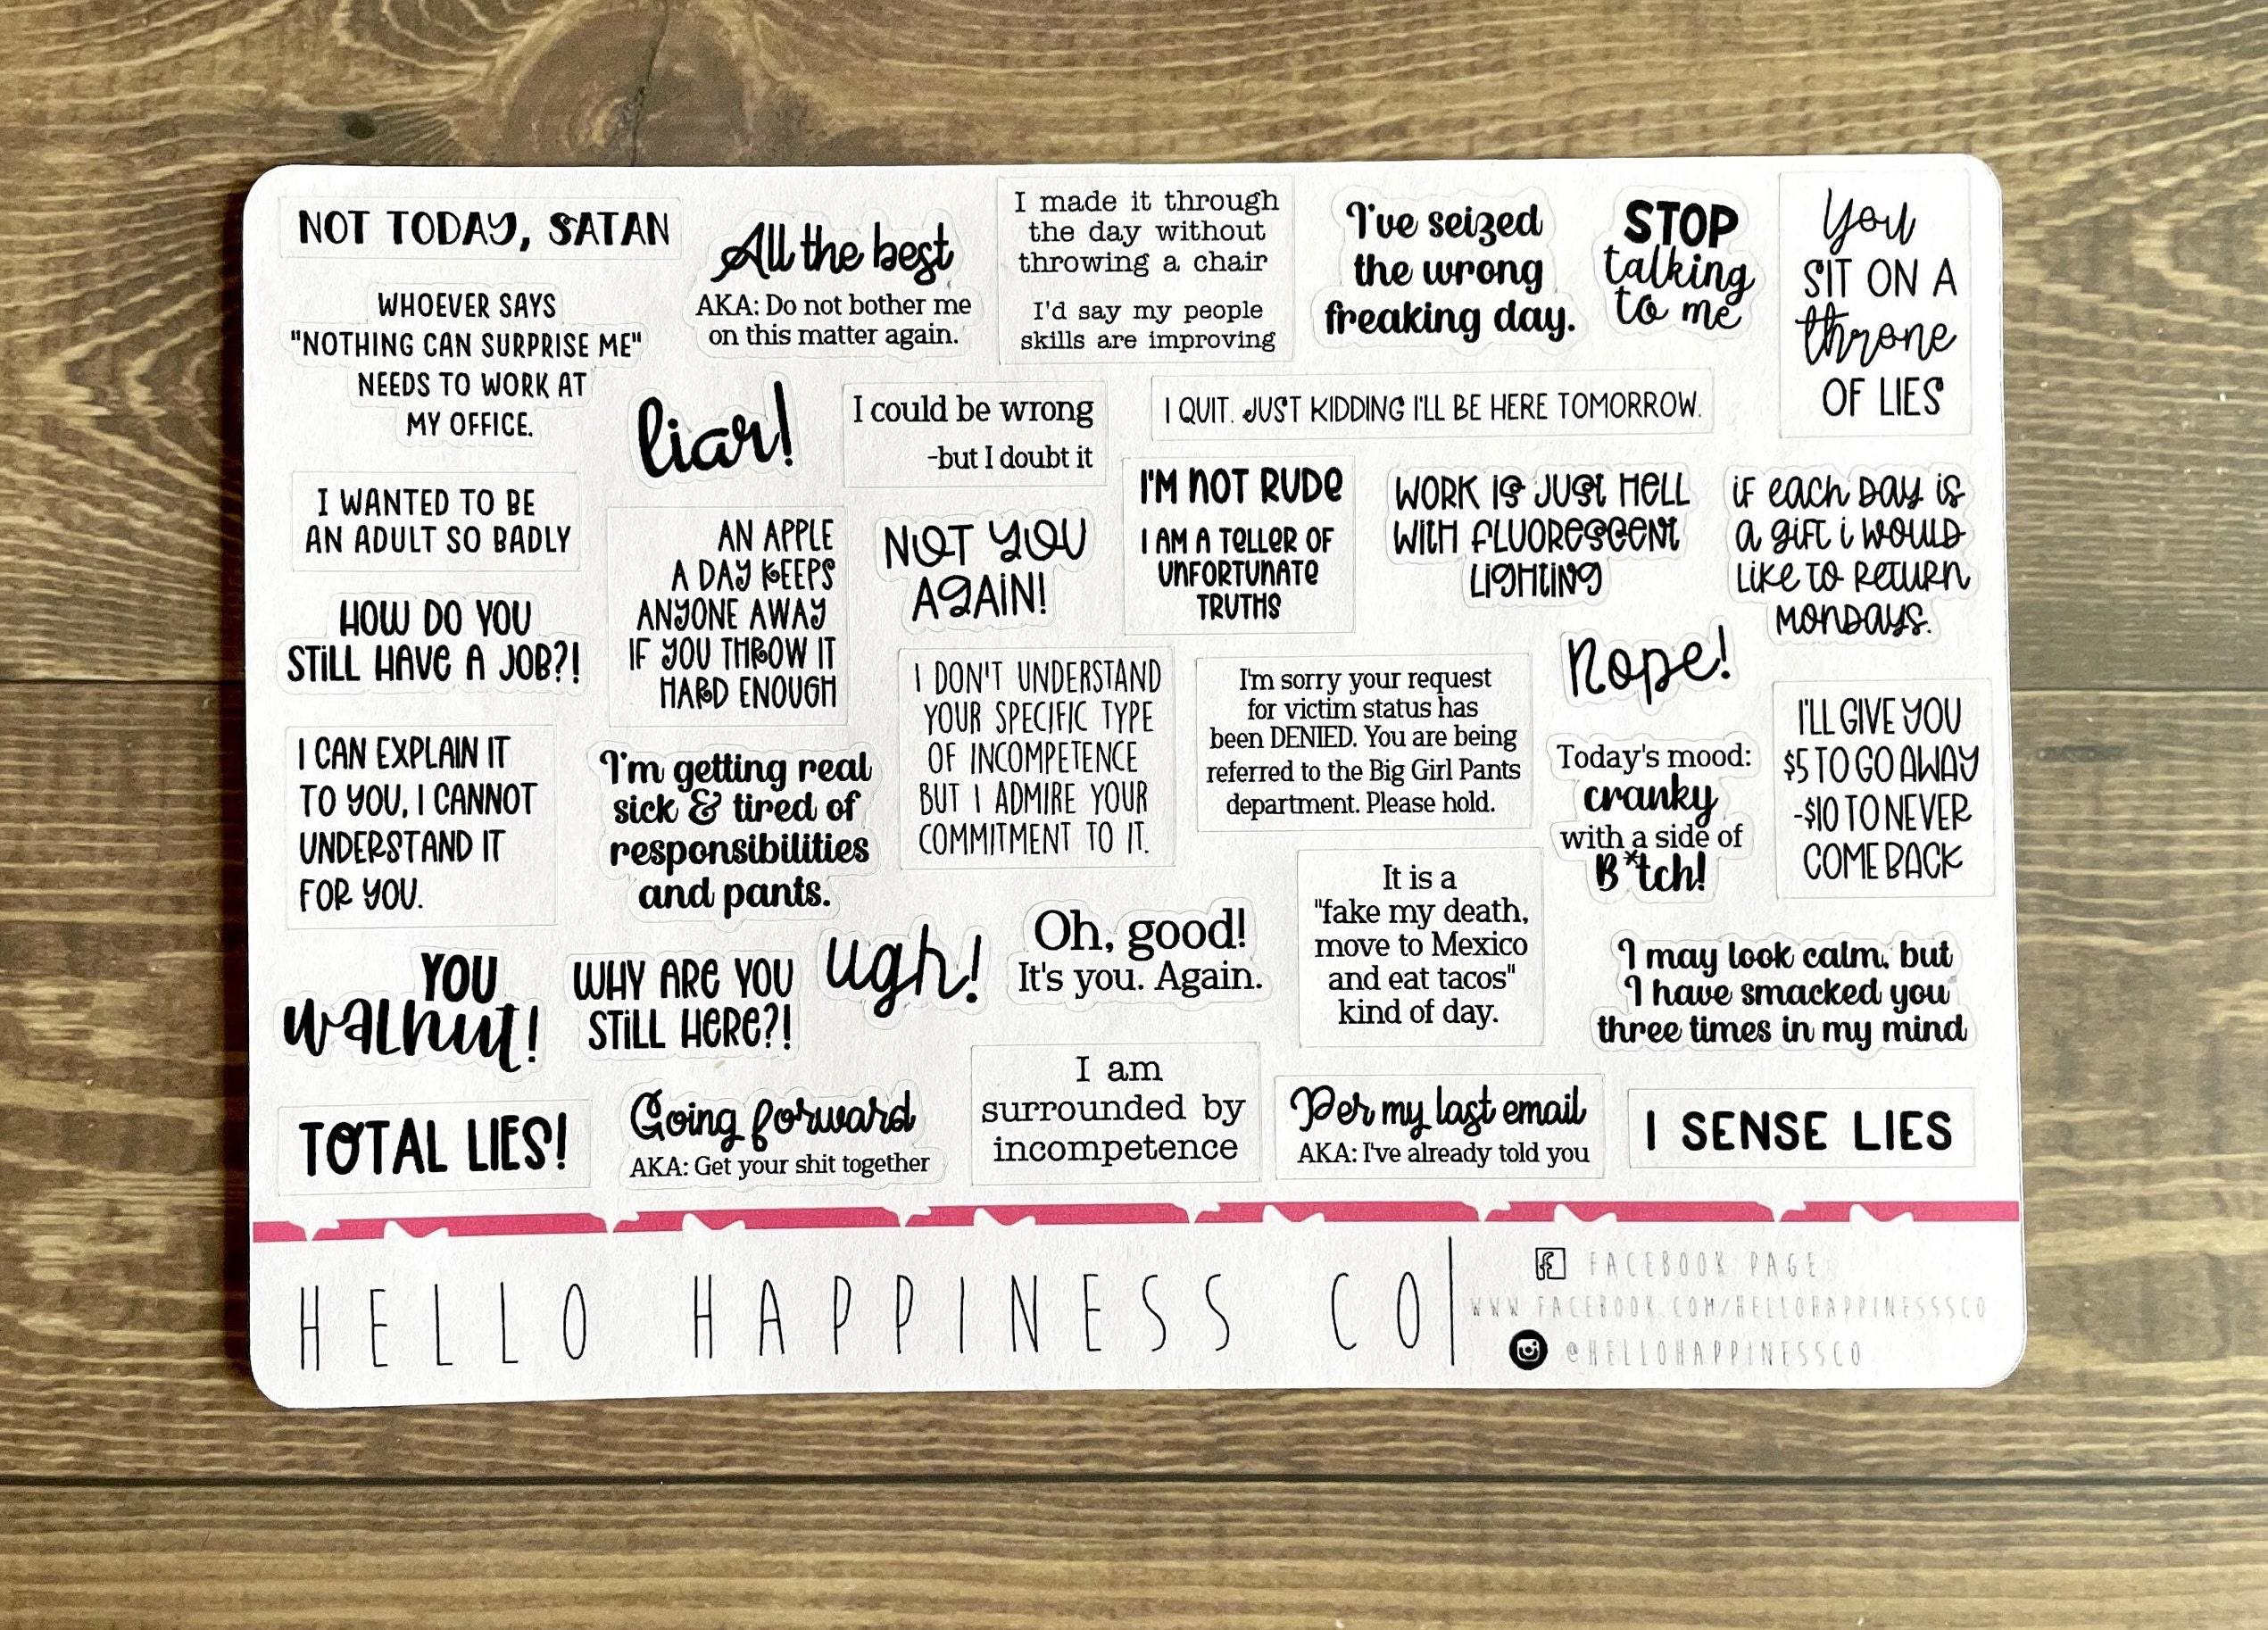 NOT TODAY, SATAN
All the best
AKA: Do not bother me
on this matter again.
I made it through
the day without
throwing a chair
I'd say my people
skills are improving
I've seized
the wrong
freaking day.
STOP
talking
to me
You
SIT ON A
throne
OF LIES
WHOEVER SAYS
"NOTHING CAN SURPRISE ME"
NEEDS TO WORK AT
MY OFFICE.
liar!
I could be wrong
-but I doubt it
I QUIT. JUST KIDDING I'LL BE HERE TOMORROW.
I WANTED TO BE
AN ADULT SO BADLY
AN APPLE
A DAY KEEPS
ANYONE AWAY
IF YOU THROW IT
HARD ENOUGH
NOT YOU
AGAIN!
I'M NOT RUDE
I AM A TELLER OF
UNFORTUNATE
TRUTHS
WORK IS JUST HELL
WITH FLUORESCENT
LIGHTING
iF each DAY is
a giFt i WOULD
Like to RETURN
MONDAYS.
HOW DO YOU
STILL HAVE A JOB?!
I DON'T UNDERSTAND
YOUR SPECIFIC TYPE
OF INCOMPETENCE
BUT I ADMIRE YOUR
COMMITMENT TO IT.
I'm sorry your request
for victim status has
been DENIED. You are being
referred to the Big Girl Pants
department. Please hold.
Nope!
Today's mood:
cranky
with a side of
B*tch!
I'LL GIVE YOU
$5 TO GO AWAY
-$10 TO NEVER
COME BACK
I CAN EXPLAIN IT
TO YOU, I CANNOT
UNDERSTAND IT
FOR YOU.
I'm getting real
sick & tired of
responsibilities
and pants.
YOU
walnut!
WHY ARE YOU
STILL HERE?!
ugh!
Oh, good!
It's you. Again.
It is a
"fake my death,
move to Mexico
and eat tacos"
kind of day.
I may look calm, but
I have smacked you
three times in my mind
TOTAL LIES!
Going forward
AKA: Get your shit together
I am
surrounded by
incompetence
Per my last email
AKA: I've already told you
I SENSE LIES
HELLO HAPPINESS CO
FACEBOOK PAGE
WWW.FACEBOOK.COM/HELLOHAPPINESSSCO
@HELLOHAPPINESSCO